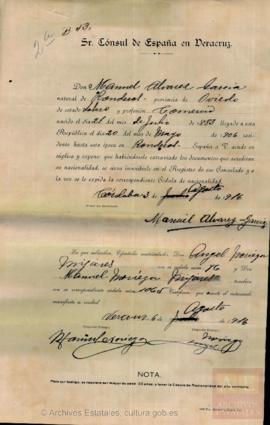 2ª
Sr. Cónsul de España en Veracruz.
Don Manuel Alvarez Garcia
natural de provincia de Oviedo
de estado y profesión Comercio
nacido el dia 21 del mes de Junio de 1883 llegado a esta
República el dia 20 del mes de Mayo de 906 resi-
dente hasta esta época en España á V. acude en
súplica y expone que habiéndosele extraviado los documentos que acreditan
su nacionalidad, se sirva inscribirle en el Registro de ese Consulado y
á la vez se le expida la correspondiente Cédula de nacionalidad.
Córdoba 3 de Agosto de 1916
Manuel Alvarez Garcia
Los que suscriben, Españoles matriculados, Don Angel Noriega
Mijares con su cédula núm. 86 y Don
Manuel Noriega Mijares también
con su correspondiente cédula núm. 1065 Certifican: que el interesado
manifiesta su verdad.
Veracruz 6 de Agosto de 1916
Manuel Noriega
NOTA.
© Archivos Estatales, cultura.gob.es